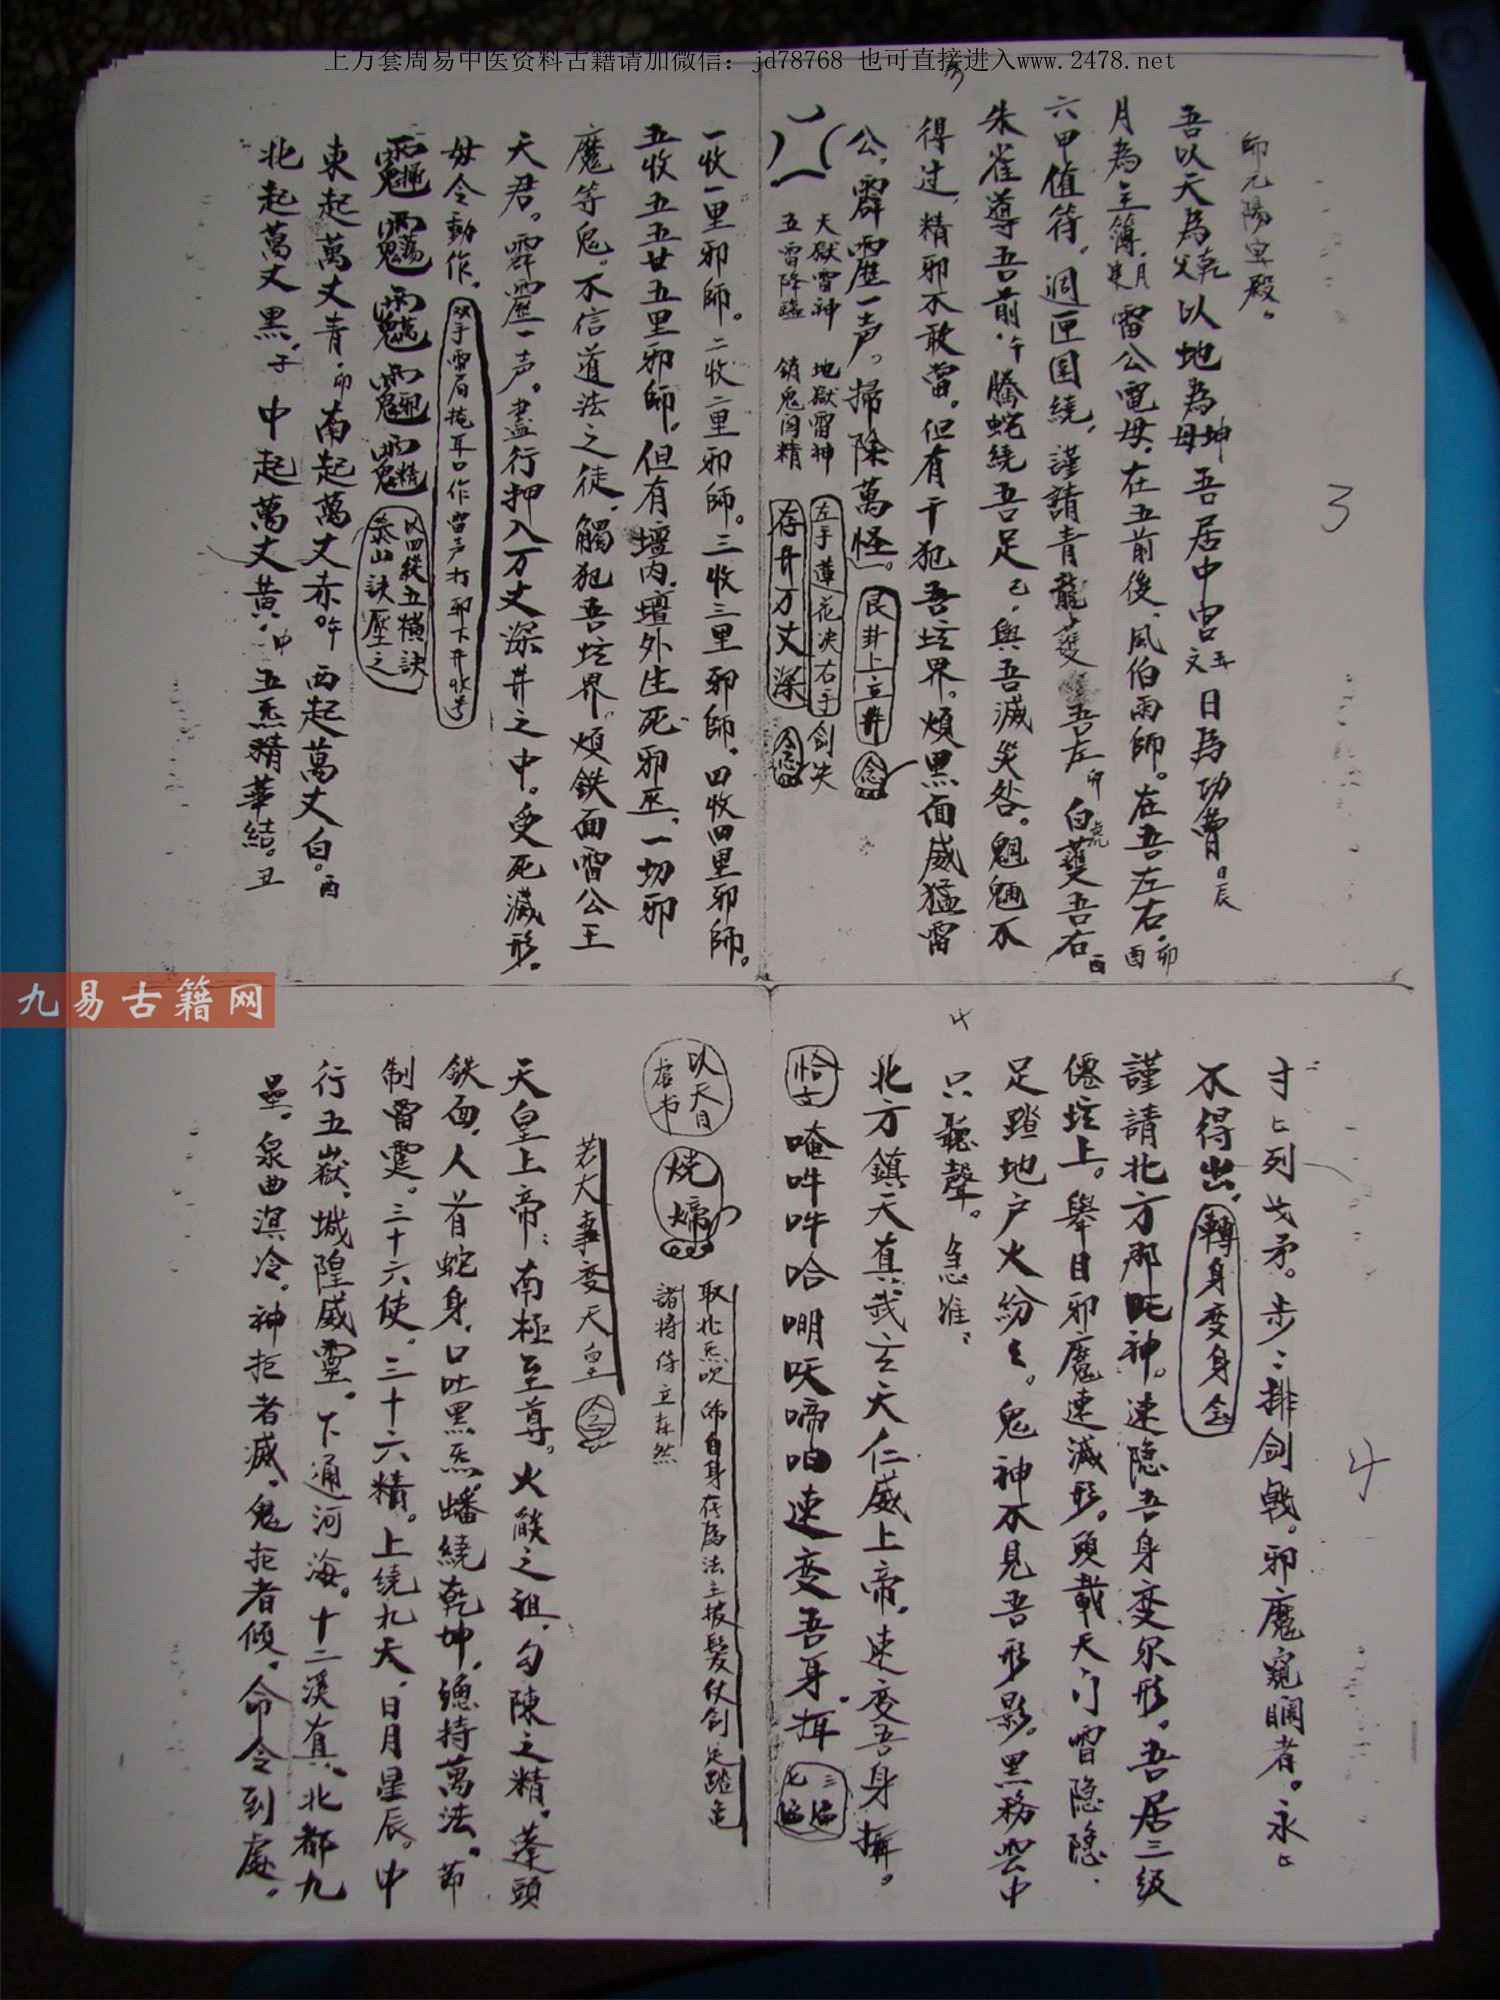 上万套周易中医资料古籍请加微信：jd78768 也可直接进入www.2478.net
3
師元陽宝殿。
吾以天為父乾以地為母坤吾居中宮五文日為功曹。日辰
月為主簿，月雷公電母，在五前後，風伯雨師。在吾左右，卯酉
六甲值符，週匝囯繞，謹請青龍護吾左卯白虎護吾右酉
朱雀導吾前，午騰蛇繞吾足己，與吾滅災咎。魍魎不
得过，精邪不敢當。但有干犯吾坛界。煩黑面威猛雷
公，霹靂一声。掃除萬怪。艮卦上立井念
天獄雷神 地獄雷神 左手蓮花决右手剑决
五雷降臨 銷鬼闭精 存井万丈深念
一收一里邪師。二收二里邪師。三收三里邪師。四收四里邪師。
五收五五廿五里邪師，但有壇内，壇外生死邪巫，一切邪
魔等鬼。不信道法之徒，觸犯吾坛界，煩鉄面雷公王
天君。霹靂一声。盡行押入万丈深井之中。受死滅形。
毋令動作。双手雷局掩耳口作雷声打邪下井收号
以四縱五横訣
泰山訣壓之
東起萬丈青，卯南起萬丈赤。午西起萬丈白。酉
北起萬丈黑，子中起萬丈黄，中五炁精華結。丑
九易古籍网
4
寸匕列戈矛。步：排剑戟。邪魔窺瞷者。永匕
不得出，轉身变身念
謹請北方那吒神。速隐吾身变尔形。吾居三级
僊坛上。舉目邪魔速滅形。頭載天门雷隐隐，
足踏地户火紛々。鬼神不見吾形影。黑務雲中
只聽聲。急准：
北方鎮天真武玄天仁威上帝，速变吾身攝。
恰文唵吽吽哈嗍呋啼咱速变吾身。攝三遍七遍
以天目虚书 烧 取北炁吹師自身存為法主披髪仗剑足踏亀
諸将侍立森然
若大事变天皇念
天皇上帝：南極至尊。火燄之祖，勾陳之精。蓬頭
鉄面，人首蛇身，口吐黑炁，蟠繞乾坤，總持萬法。節
制雷霆。三十六使。三十六精。上繞九天，日月星辰。中
行五嶽，城隍威靈。下通河海。十二溪真。北都九
壘。泉曲溟冷。神拒者滅。鬼拒者傾。命令到處。